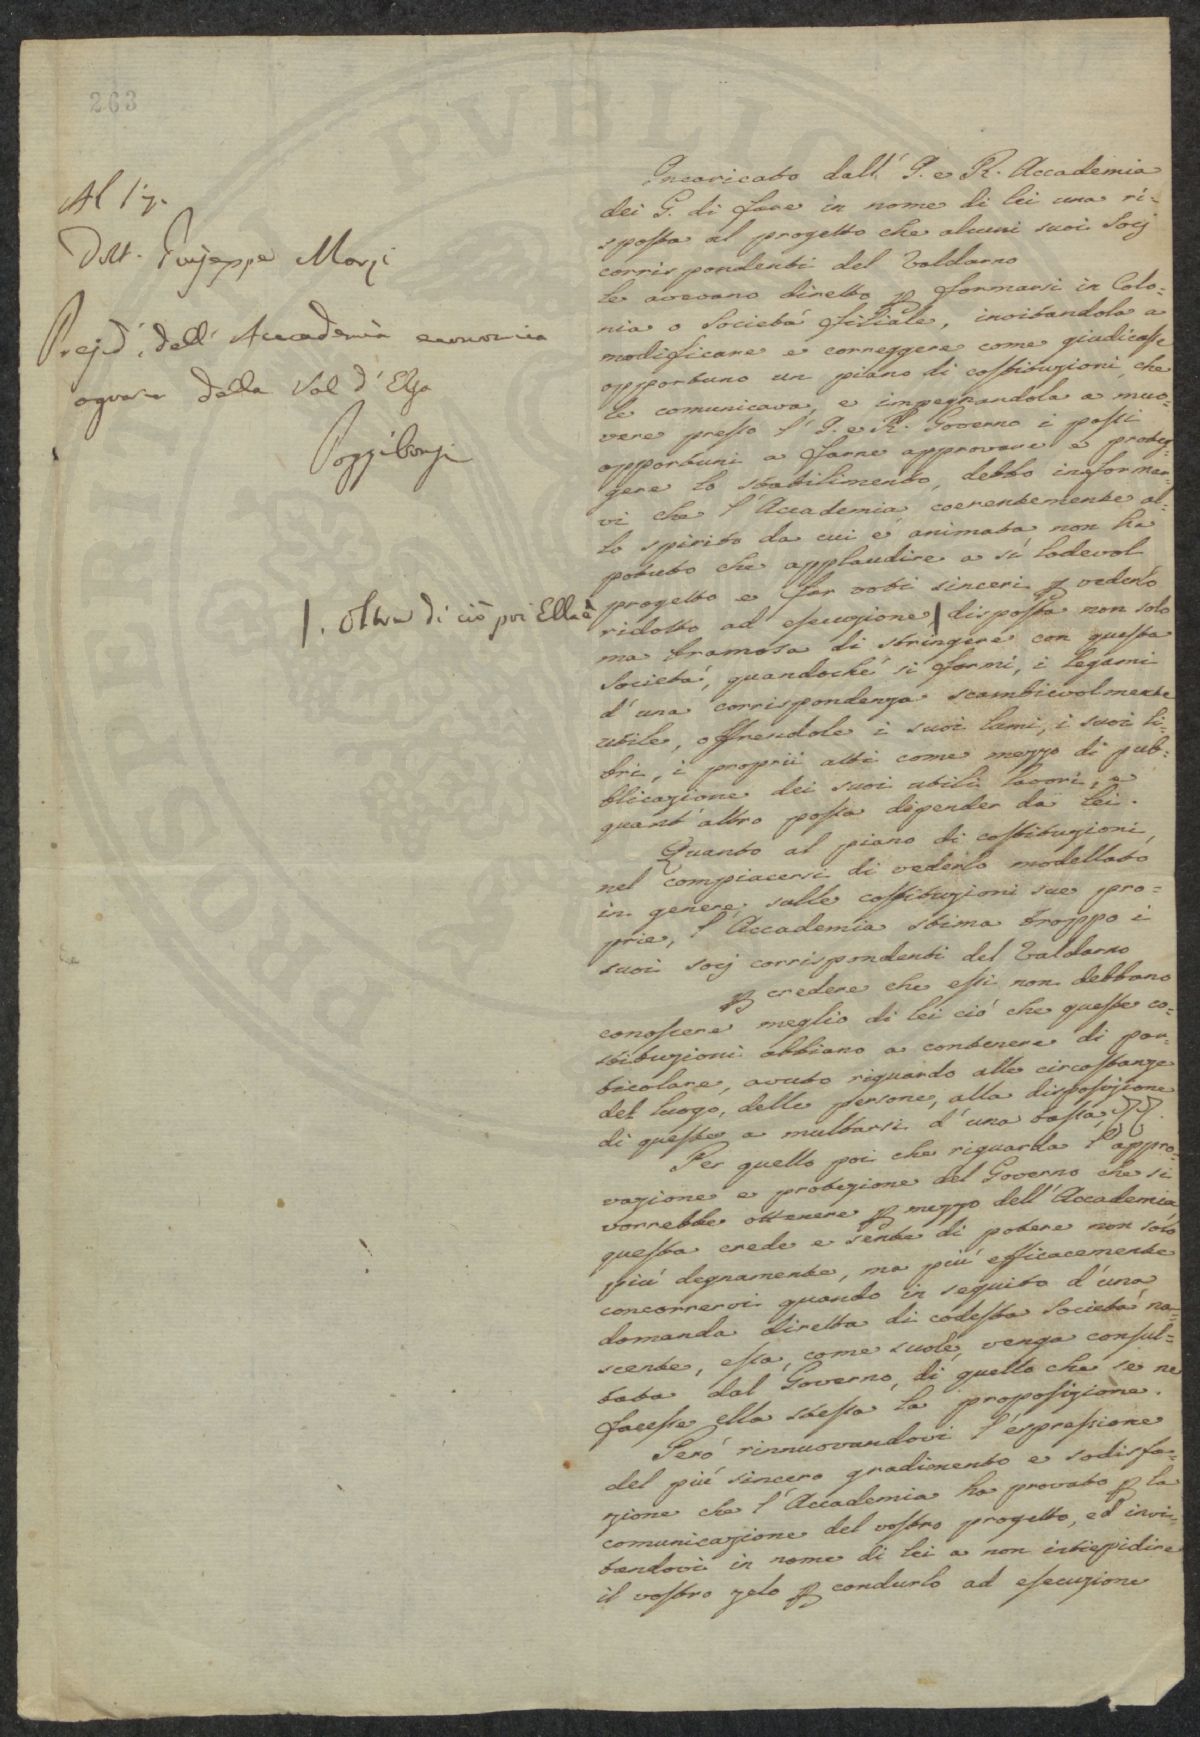 263
Al Sig.
Dott. Giuseppe Marzi
Presid. dell' Accademia economico
agraria della Val d'Elsa
Poggibonsi
|. Oltre di ciò poi Ella è
Incaricato dall' I. e R. Accademia
dei G. di fare in nome di lei una ri-
sposta al progetto che alcuni suoi Socj
corrispondenti del Valdarno
le avevano diretto p formarsi in Colo-
nia o Società filiale, invitandola a
modificare e correggere come giudicasse
opportuno un piano di costituzioni che
le comunicava, e impegnandola a muo-
vere presso l' I. e R. Governo i passi
opportuni a farne approvare e proteg-
gere lo stabilimento, debbo informar-
vi che l'Accademia coerentemente al-
lo spirito da cui è animata non ha
potuto che applaudire a sì lodevol
progetto e far voti sinceri p vederlo
ridotto ad esecuzione | disposta non solo
ma bramosa di stringere con questa
Società, quandochè si formi, i legami
d'una corrispondenza scambievolmente
utile, offrendole i suoi lumi, i suoi li-
bri, i proprii atti come mezzo di pub-
blicazione dei suoi utili lavori, e
quant' altro possa dipender da lei.
Quanto al piano di costituzioni,
nel compiacersi di vederlo modellato
in genere sulle costituzioni sue pro-
prie, l'Accademia stima troppo i
suoi socj corrispondenti del Valdarno
p credere che essi non debbano
conoscere meglio di lei ciò che queste co-
stituzioni abbiano a contenere di par-
ticolare, avuto riguardo alle circostanze
del luogo, delle persone, alla disposizione
di queste a multarsi d'una tassa
Per quello poi che riguarda l'appro-
vazione e protezione del Governo che si
vorrebbe ottenere p mezzo dell'Accademia,
questa crede e sente di potere non solo
più degnamente, ma più efficacemente
concorrervi quando in seguito d'una
domanda diretta di codesta Società na-
scente, essa, come suole, venga consul-
tata dal Governo, di quello che se ne
facesse ella stessa la proposizione.
Però rinnuovandovi l'espressione
del più sincero gradimento e sodisfa-
zione che l'Accademia ha provato p la
comunicazione del vostro progetto, ed invi-
tandovi in nome di lei a non intiepidire
il vostro zelo p condurlo ad esecuzione